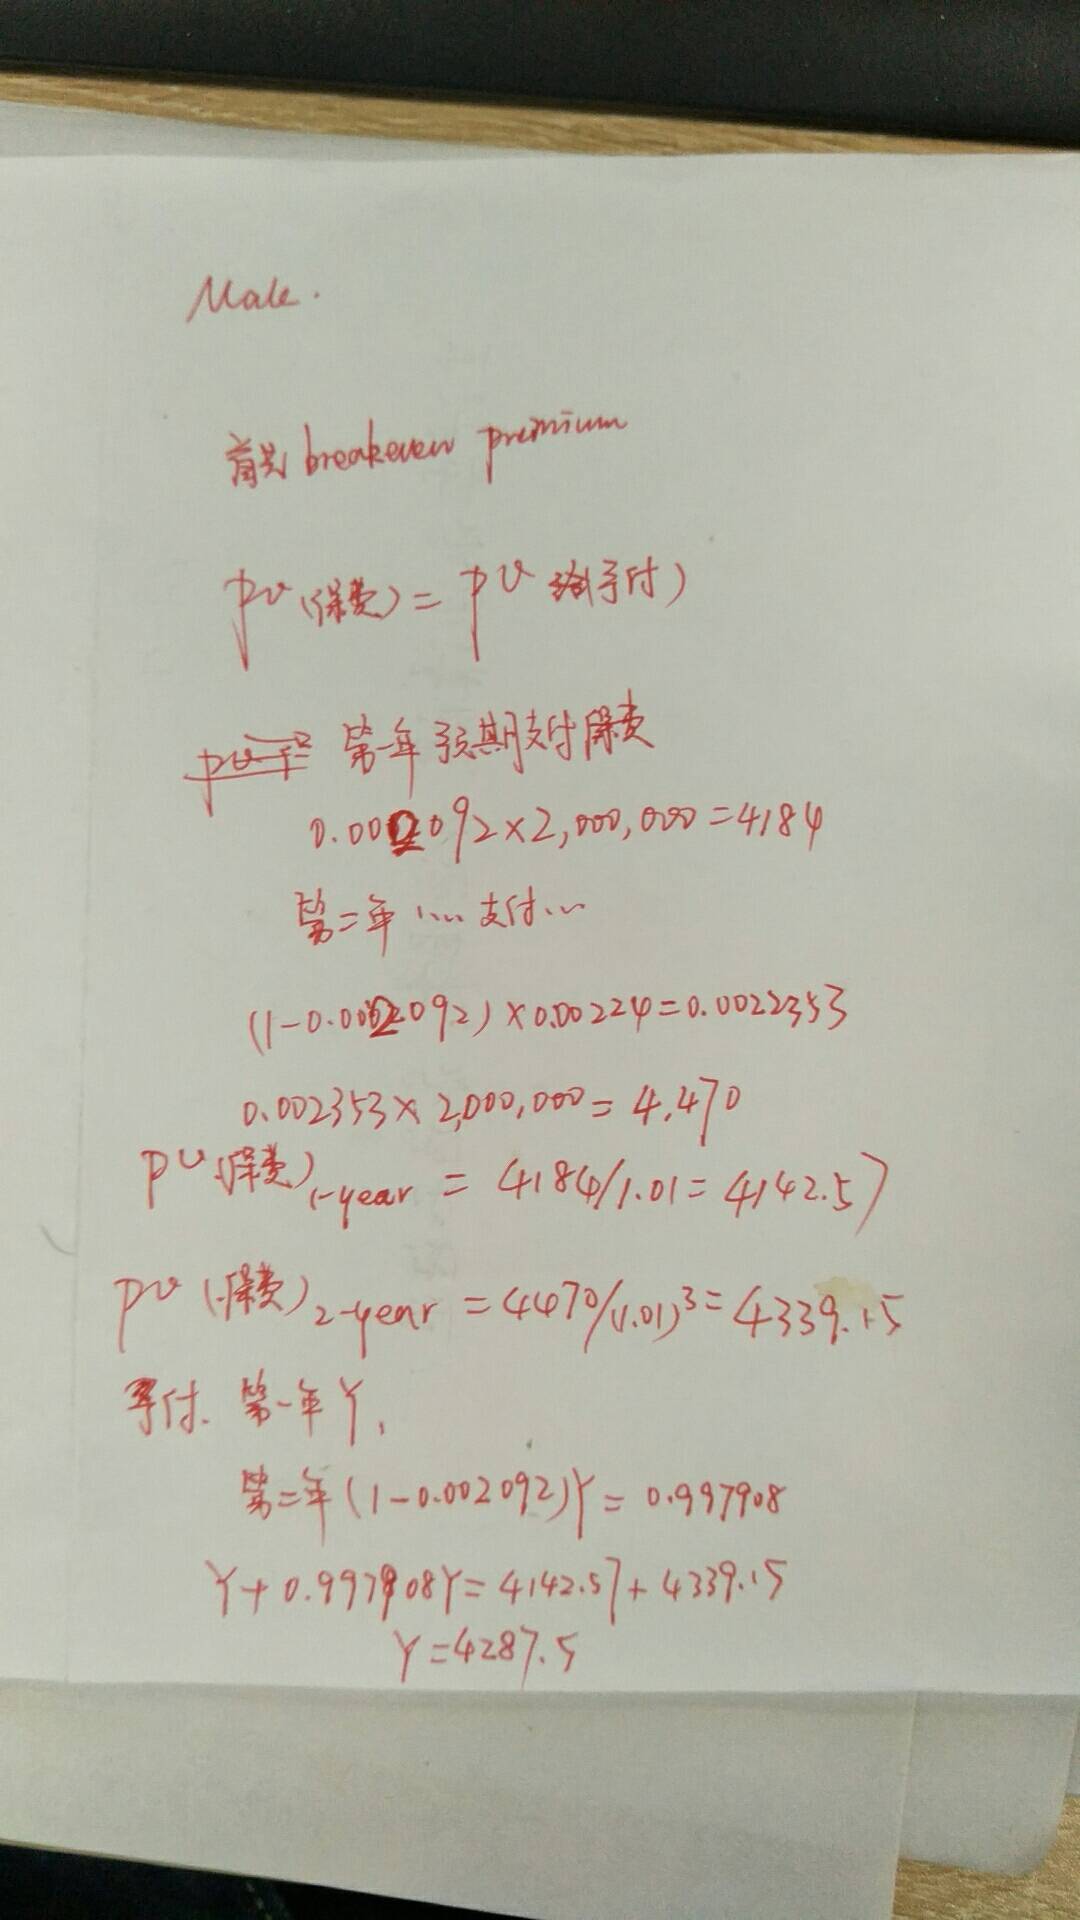 Male.
首先 breakeven premium
pv(保费) = pv 给予付)
第一年预期支付保费
0.002092×2,000,000=4184
第二年 .... 支付...
(1-0.002092)×0.00224=0.0022353
0.002353×2,000,000=4,470
pv(保费)1-year = 4184/1.01=4142.57
pv(保费)2-year =4470/(1.01)³=4339.15
予付. 第一年Y,
第二年(1-0.002092)Y= 0.997908
Y+0.997908Y=4142.57+4339.15
Y=4287.5